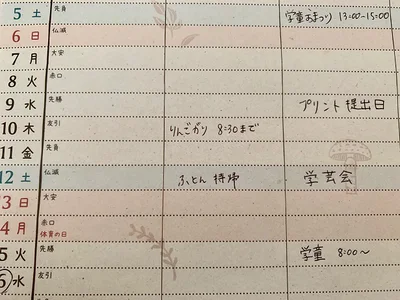 5 土 先負 学童おまつり 13:00-15:00
6 日 仏滅
7 月 大安
8 火 赤口
9 水 先勝 プリント提出日
10 木 友引 りんごがり 8:30まで
11 金 先負
12 土 仏滅 ふとん 持帰 学芸会
3 日 大安
4 月 赤口
体育の日
5 火 先勝 学童 8:00~
6 水